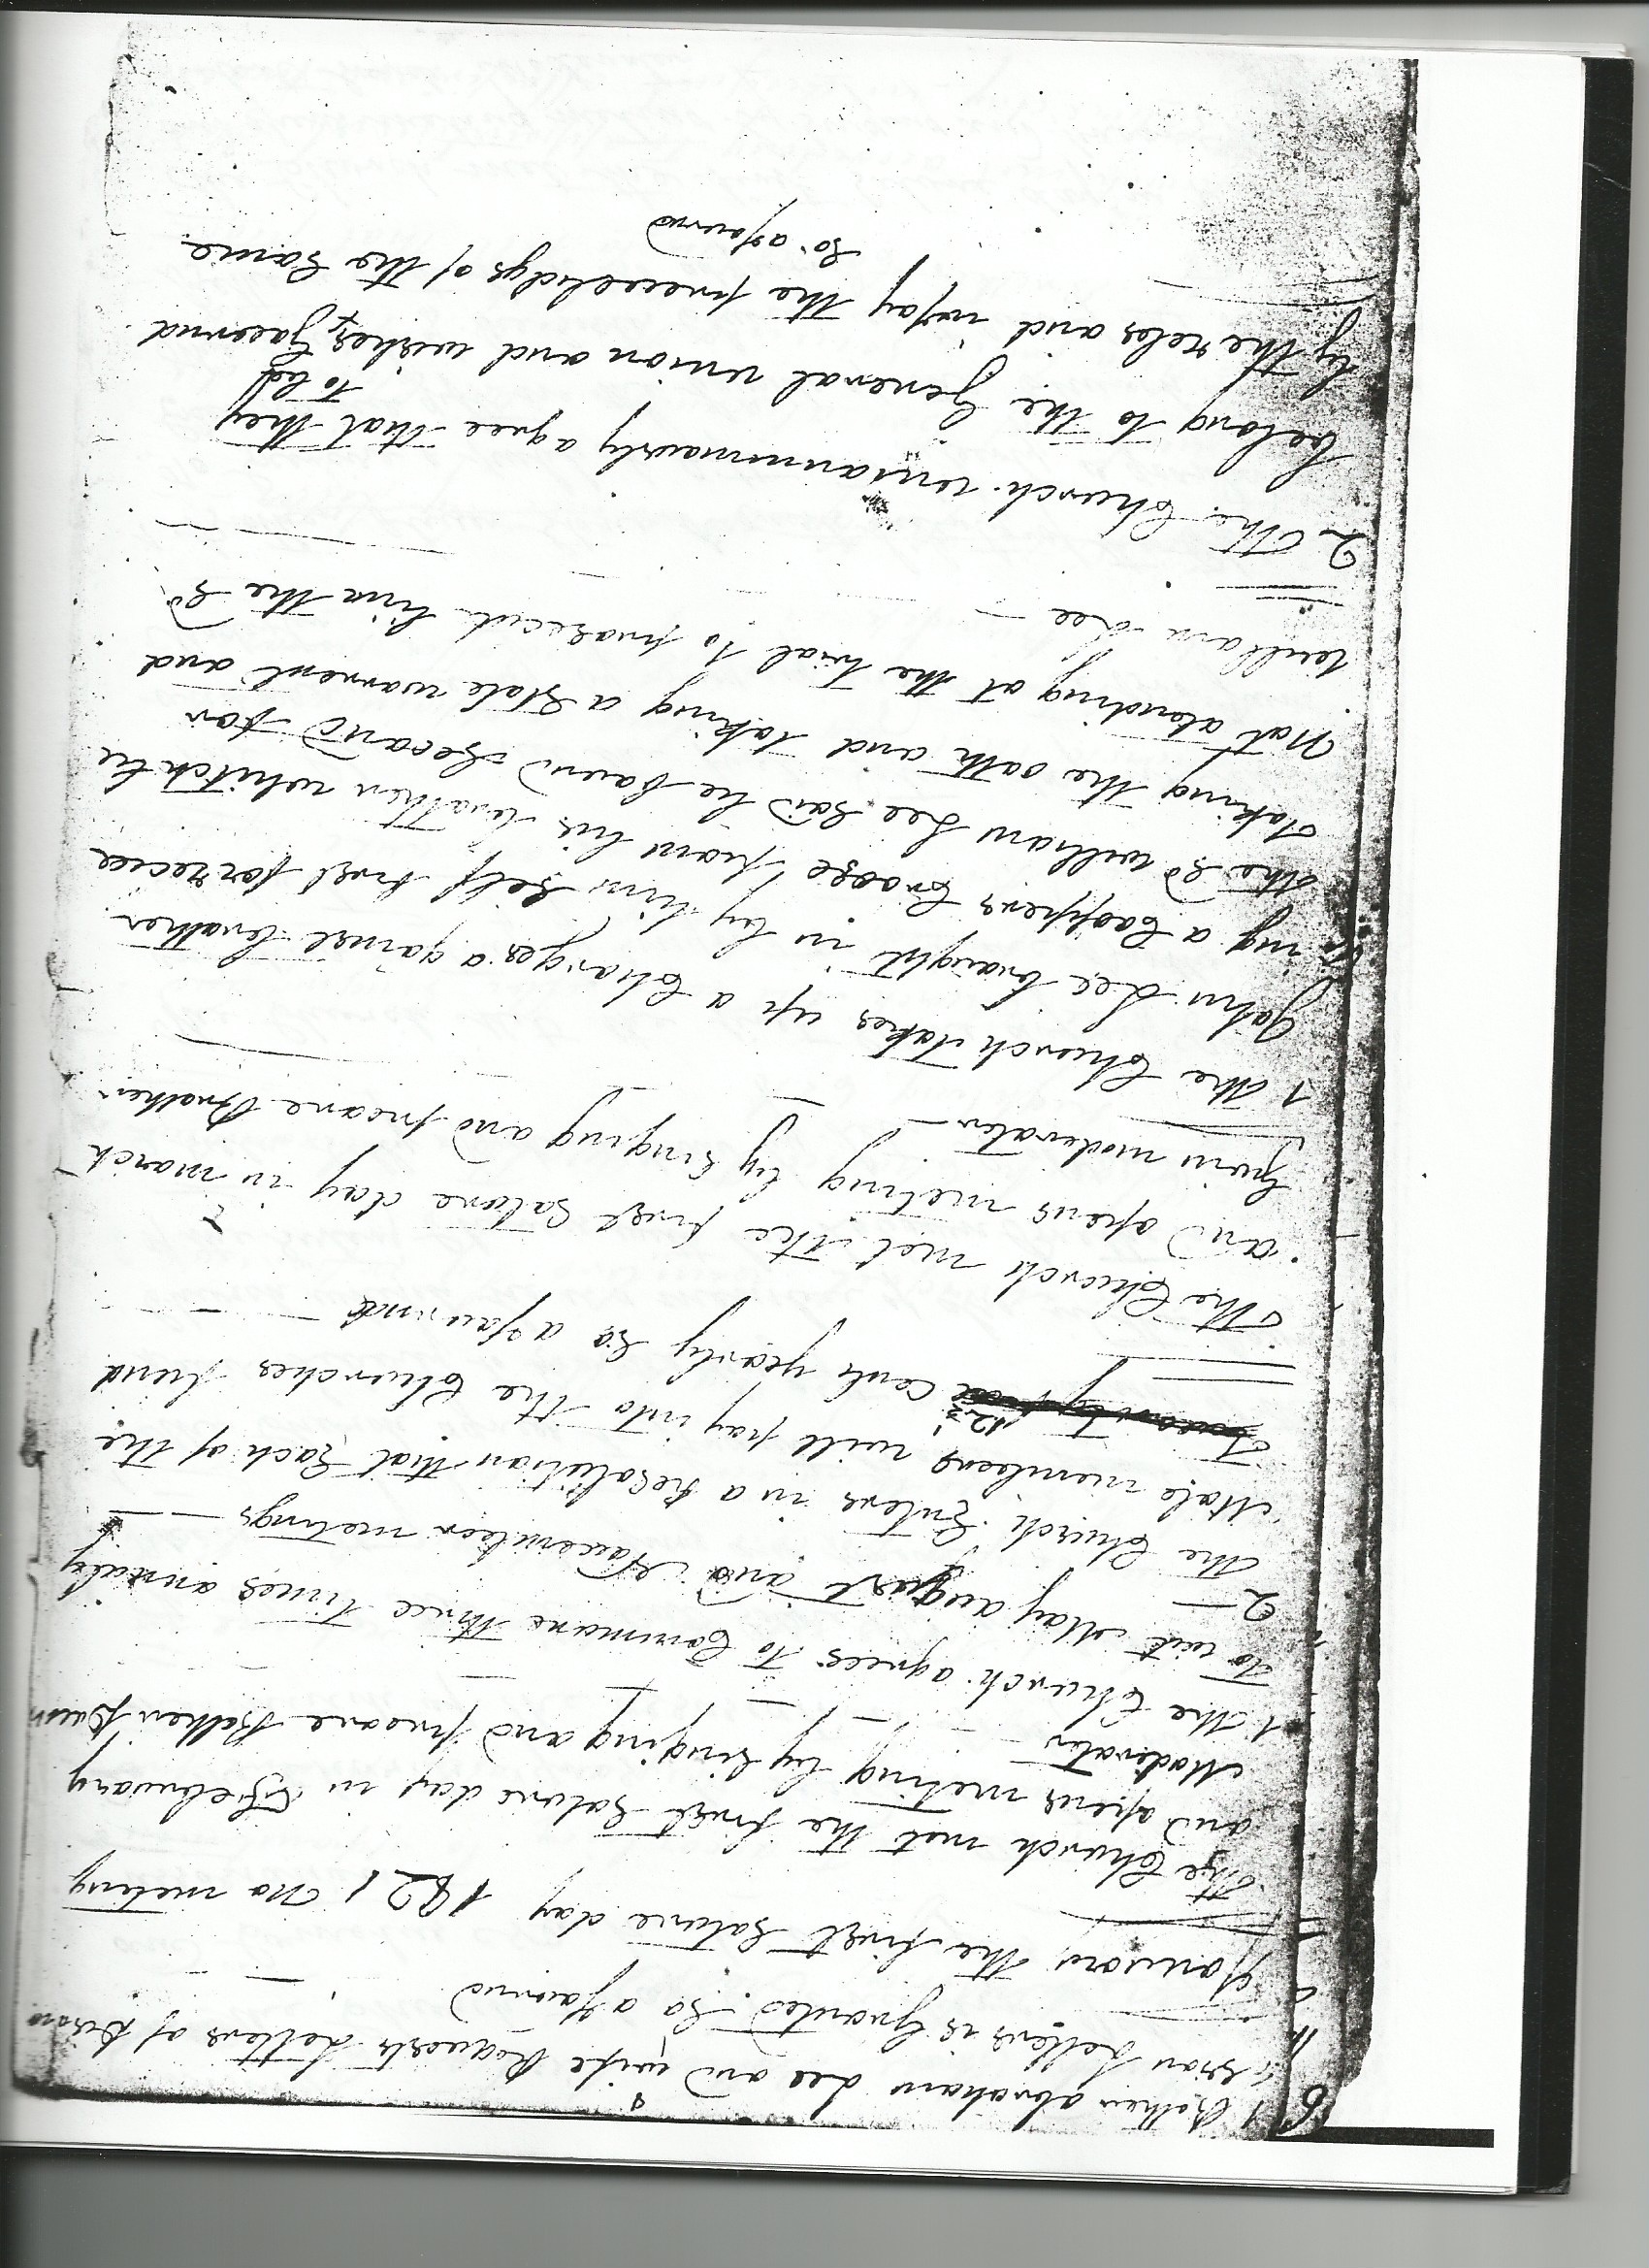 6
1 Brother abraham Lee and wife Requests Letters of Dismi
ssion Letters is Granted So ajaurnd
January the first Saturde day 1821 No meting
The Church met the first Saturde day in February
and opens meting by Singing and preare Brother
Moderator
1 the Church agrees to Commune three times annualy
To wit May august and Novembeer meetings
2 the Church Enters in a Resalution that Each of the
Male members will pay into the Churches fund
12½ Cents yearly So ajaurnd
The Church met the first Saturde day in march
and opens meting by Singing and preare Brother
Gwin moderator
1 the Church takes up a Charges against brother
John Lee braight in by him Self first for recev
ing a Coappers Gooze from his brother whitch he
the sd william Lee Said he barnd Second for
taking the oath and taking a State warrent and
Not atending at the trial to prosecute him the sd
william Lee
2 The Church unianimously agree that they
belong to the General union and wishes to be Gavernd
by the rules and injay the priveelidgs of the Same
So ajaurnd